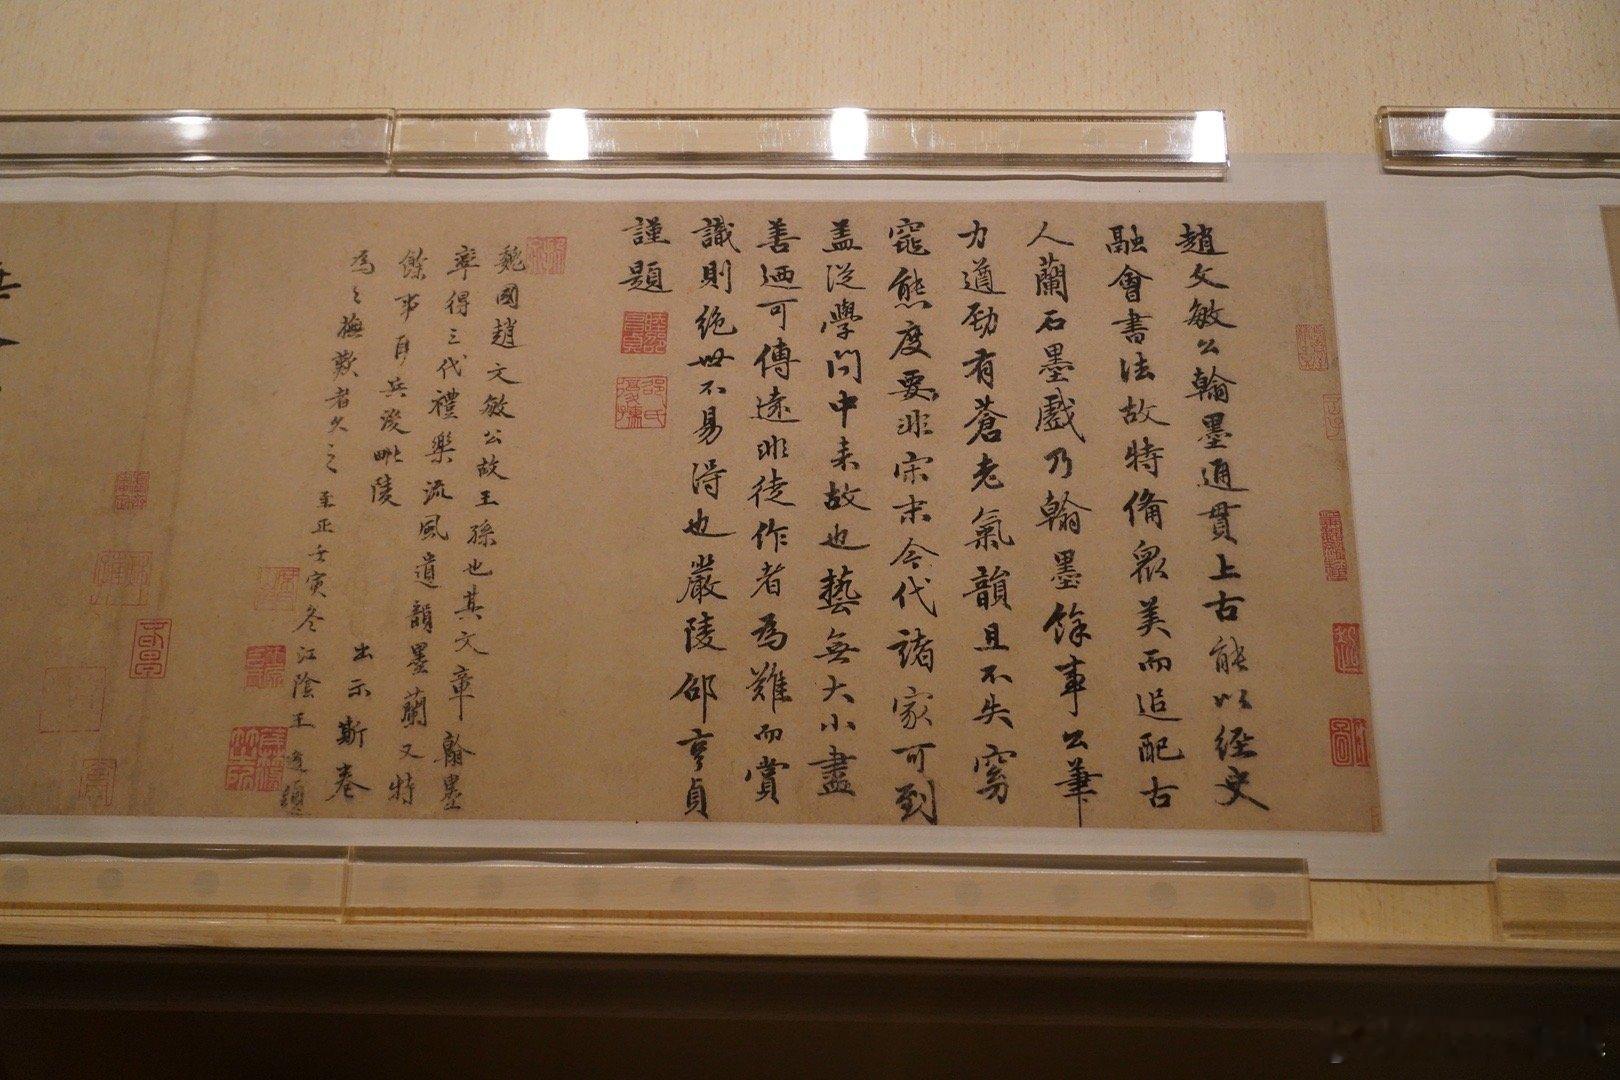 趙文敏公翰墨通貫上古能以經史
融會書法故特備衆美而追配古
人蘭石墨戲乃翰墨餘事公筆
力遒勁有蒼老氣韻且不失窈
窕態度要非宋末今代諸家可到
盖從學問中来故也藝無大小盡
善迺可傳遠非徒作者為難而賞
識則絶世不易得也嚴陵邵亨貞
謹題
魏國趙文敏公故王孫也其文章翰墨
率得三代禮樂流風遺韻墨蘭又特
餘事耳兵後毗陵
出示斯卷
為之撫歎者久之至正壬寅冬江陰王逢題